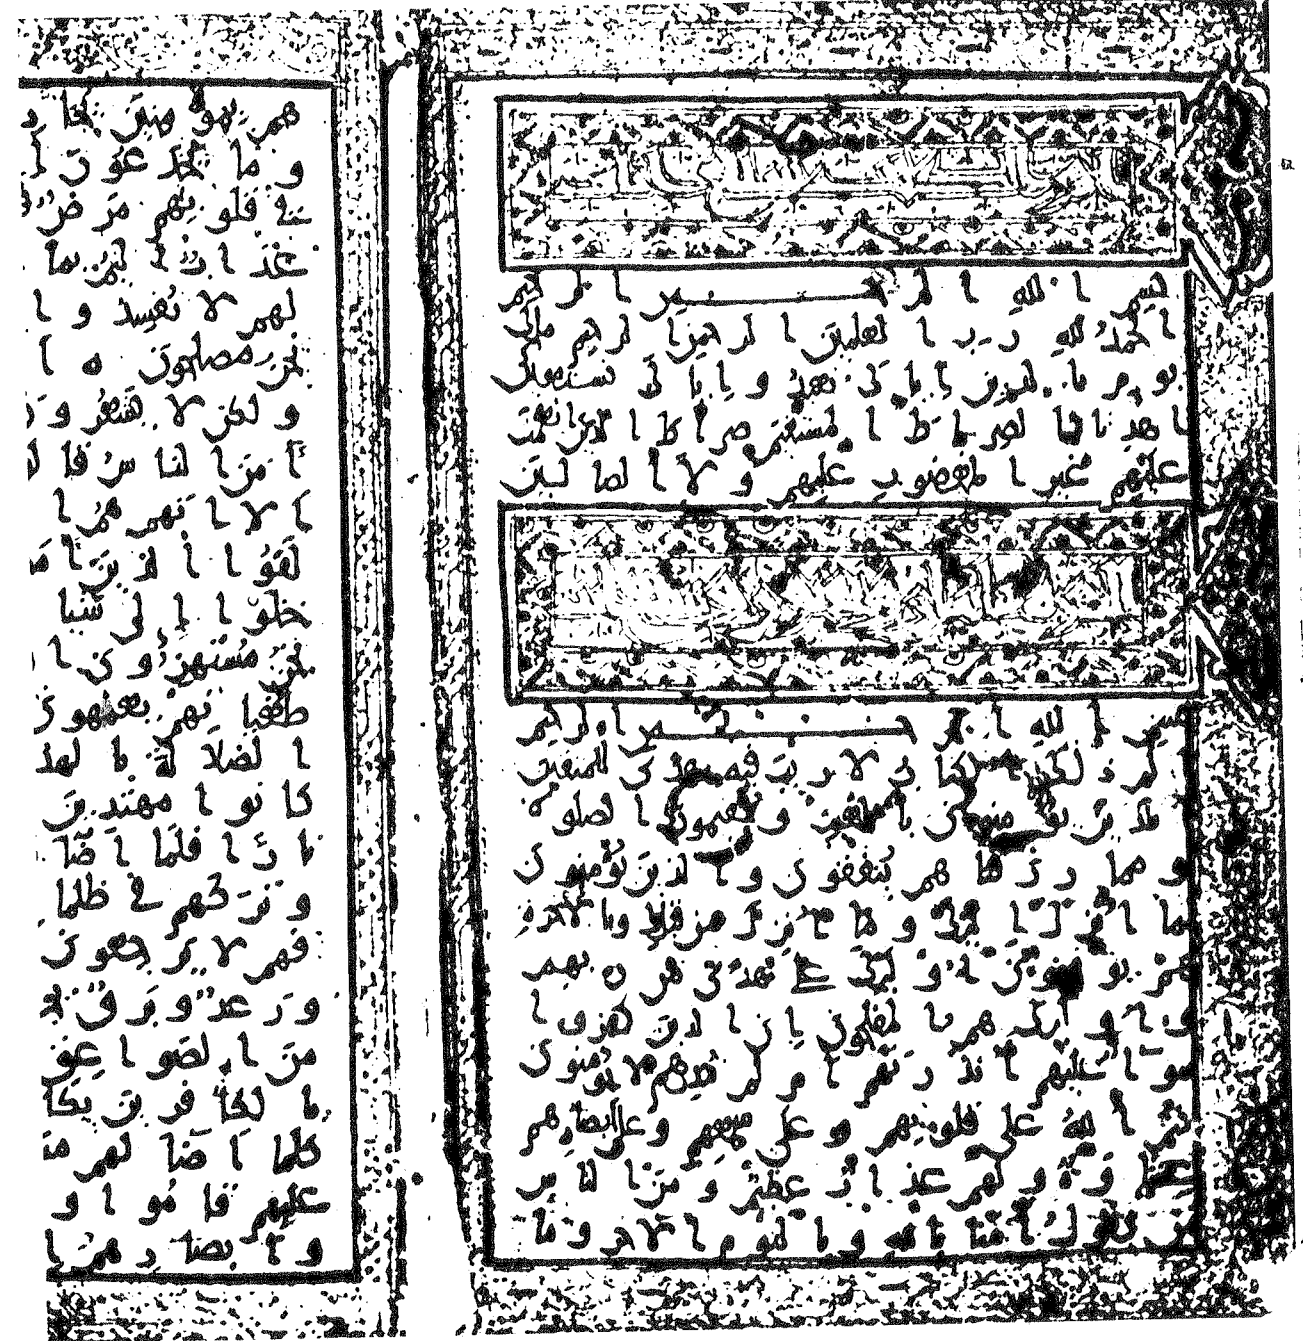 بسم الله الرحمن الرحيم
الحمد لله رب العلمين الرحمن الرحيم ملك
يوم الدين إياك نعبد وإياك نستعين
اهدنا الصراط المستقيم صراط الذين أنعمت
عليهم غير المغضوب عليهم ولا الضالين
بسم الله الرحمن الرحيم
الم ذلك الكتاب لا ريب فيه هدى للمتقين
الذين يؤمنون بالغيب ويقيمون الصلوة
ومما رزقنهم ينفقون والذين يؤمنون
بما أنزل إليك وما أنزل من قبلك وبالآخرة
هم يوقنون أولئك على هدى من ربهم
وأولئك هم المفلحون إن الذين كفروا
سوا عليهم أنذرتهم أم لم تنذرهم لا يؤمنون
ختم الله على قلوبهم وعلى سمعهم وعلى أبصارهم
غشاوة ولهم عذاب عظيم ومن الناس
من يقول آمنا بالله وباليوم الآخر وما
هم بمؤمنين يخا د
وما يخدعون إ
في قلوبهم مرض ف
عذاب أليم بما
لهم لا تفسدوا
نحن مصلحون ا
ولكن لا يشعرون
آمن الناس قالوا
ألا إنهم هم ا
لقوا الذين آم
خلوا إلى شيا
نحن مستهزؤن ا
طغيانهم يعمهون
الضلالة بالهد
كانوا مهتدين
نارا فلما أضا
وتركهم في ظلما
فهم لا يرجعون
ورعد وبرق يج
من الصواعق
بالكافرين يكا
كلما أضا لهم م
عليهم قاموا و
وأبصارهم إ